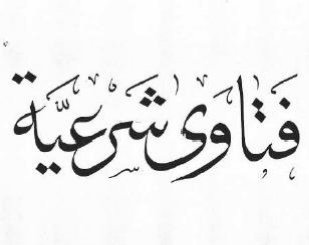 فتاوى شرعيّة